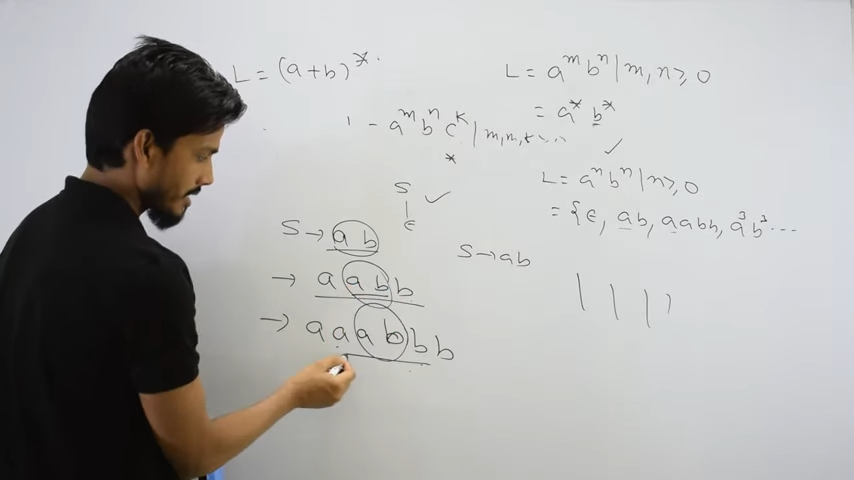 L = (a+b)*
L = a^m b^n | m, n ≥ 0
= a* b*
a^m b^n c^k | m, n, k
*
✓
L = a^n b^n | n ≥ 0
= { ε, ab, aabb, a^3 b^3 ...
S ✓
|
ε
S → ab
→ a ab b
→ a a a b b b
S → ab